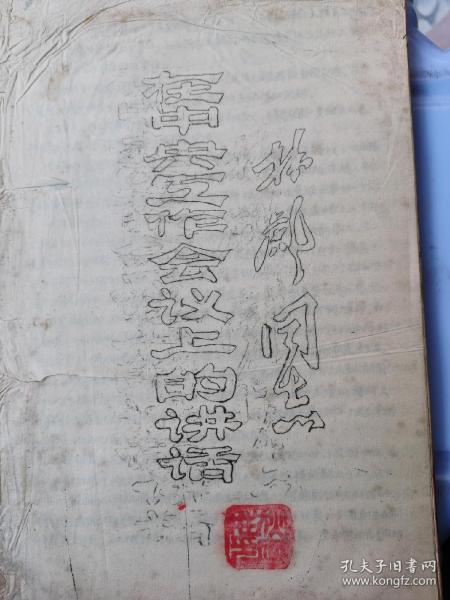 林彪同志
在中央工作会议上的讲话
孔夫子旧书网
www.kongfz.com